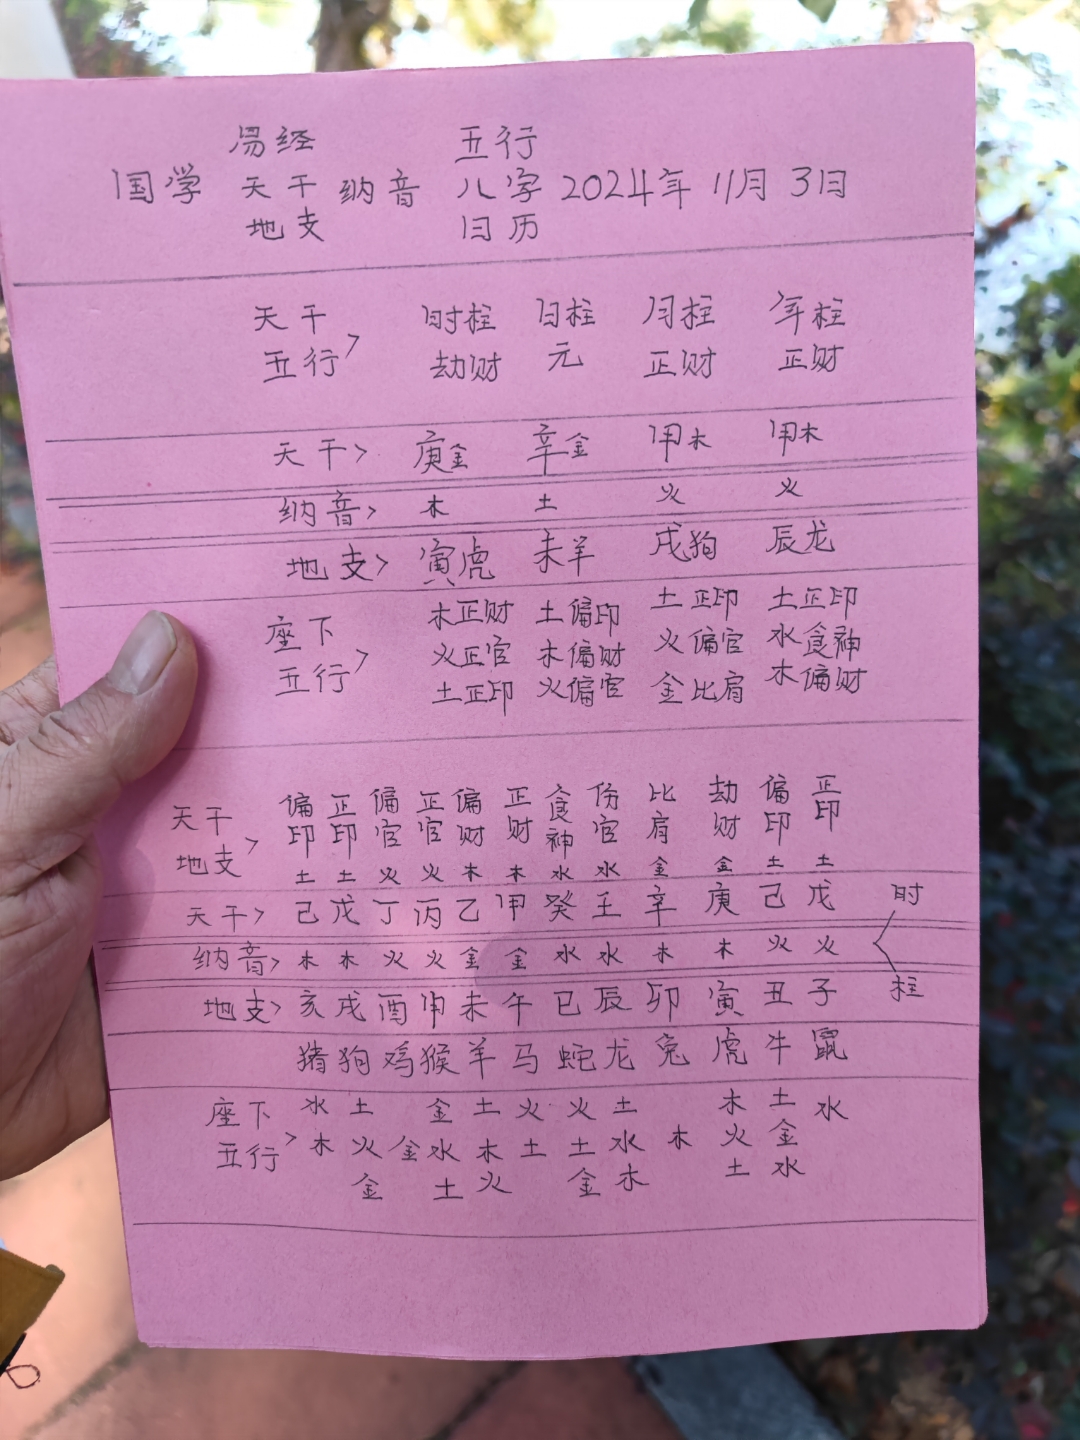 易经 五行
国学 天干 纳音 八字 2024年 11月 3日
地支 日历
天干 时柱 日柱 月柱 年柱
五行> 劫财 元 正财 正财
天干> 庚金 辛金 甲木 甲木
纳音> 木 土 火 火
地支> 寅虎 未羊 戌狗 辰龙
木正财 土偏印 土正印 土正印
座下 火正官 木偏财 火偏官 水食神
五行> 土正印 火偏官 金比肩 木偏财
天干 偏印 正印 偏官 正官 偏财 正财 食神 伤官 比肩 劫财 偏印 正印
地支> 土 土 火 火 木 木 水 水 金 金 土 土
天干> 己 戊 丁 丙 乙 甲 癸 壬 辛 庚 己 戊 时
纳音> 木 木 火 火 金 金 水 水 木 木 火 火
地支> 亥 戌 酉 申 未 午 巳 辰 卯 寅 丑 子 柱
猪 狗 鸡 猴 羊 马 蛇 龙 兔 虎 牛 鼠
座下 水 土 金 土 火 火 土 木 土 水
五行> 木 火 金 水 木 土 土 水 木 火 金
金 土 火 金 木 土 水